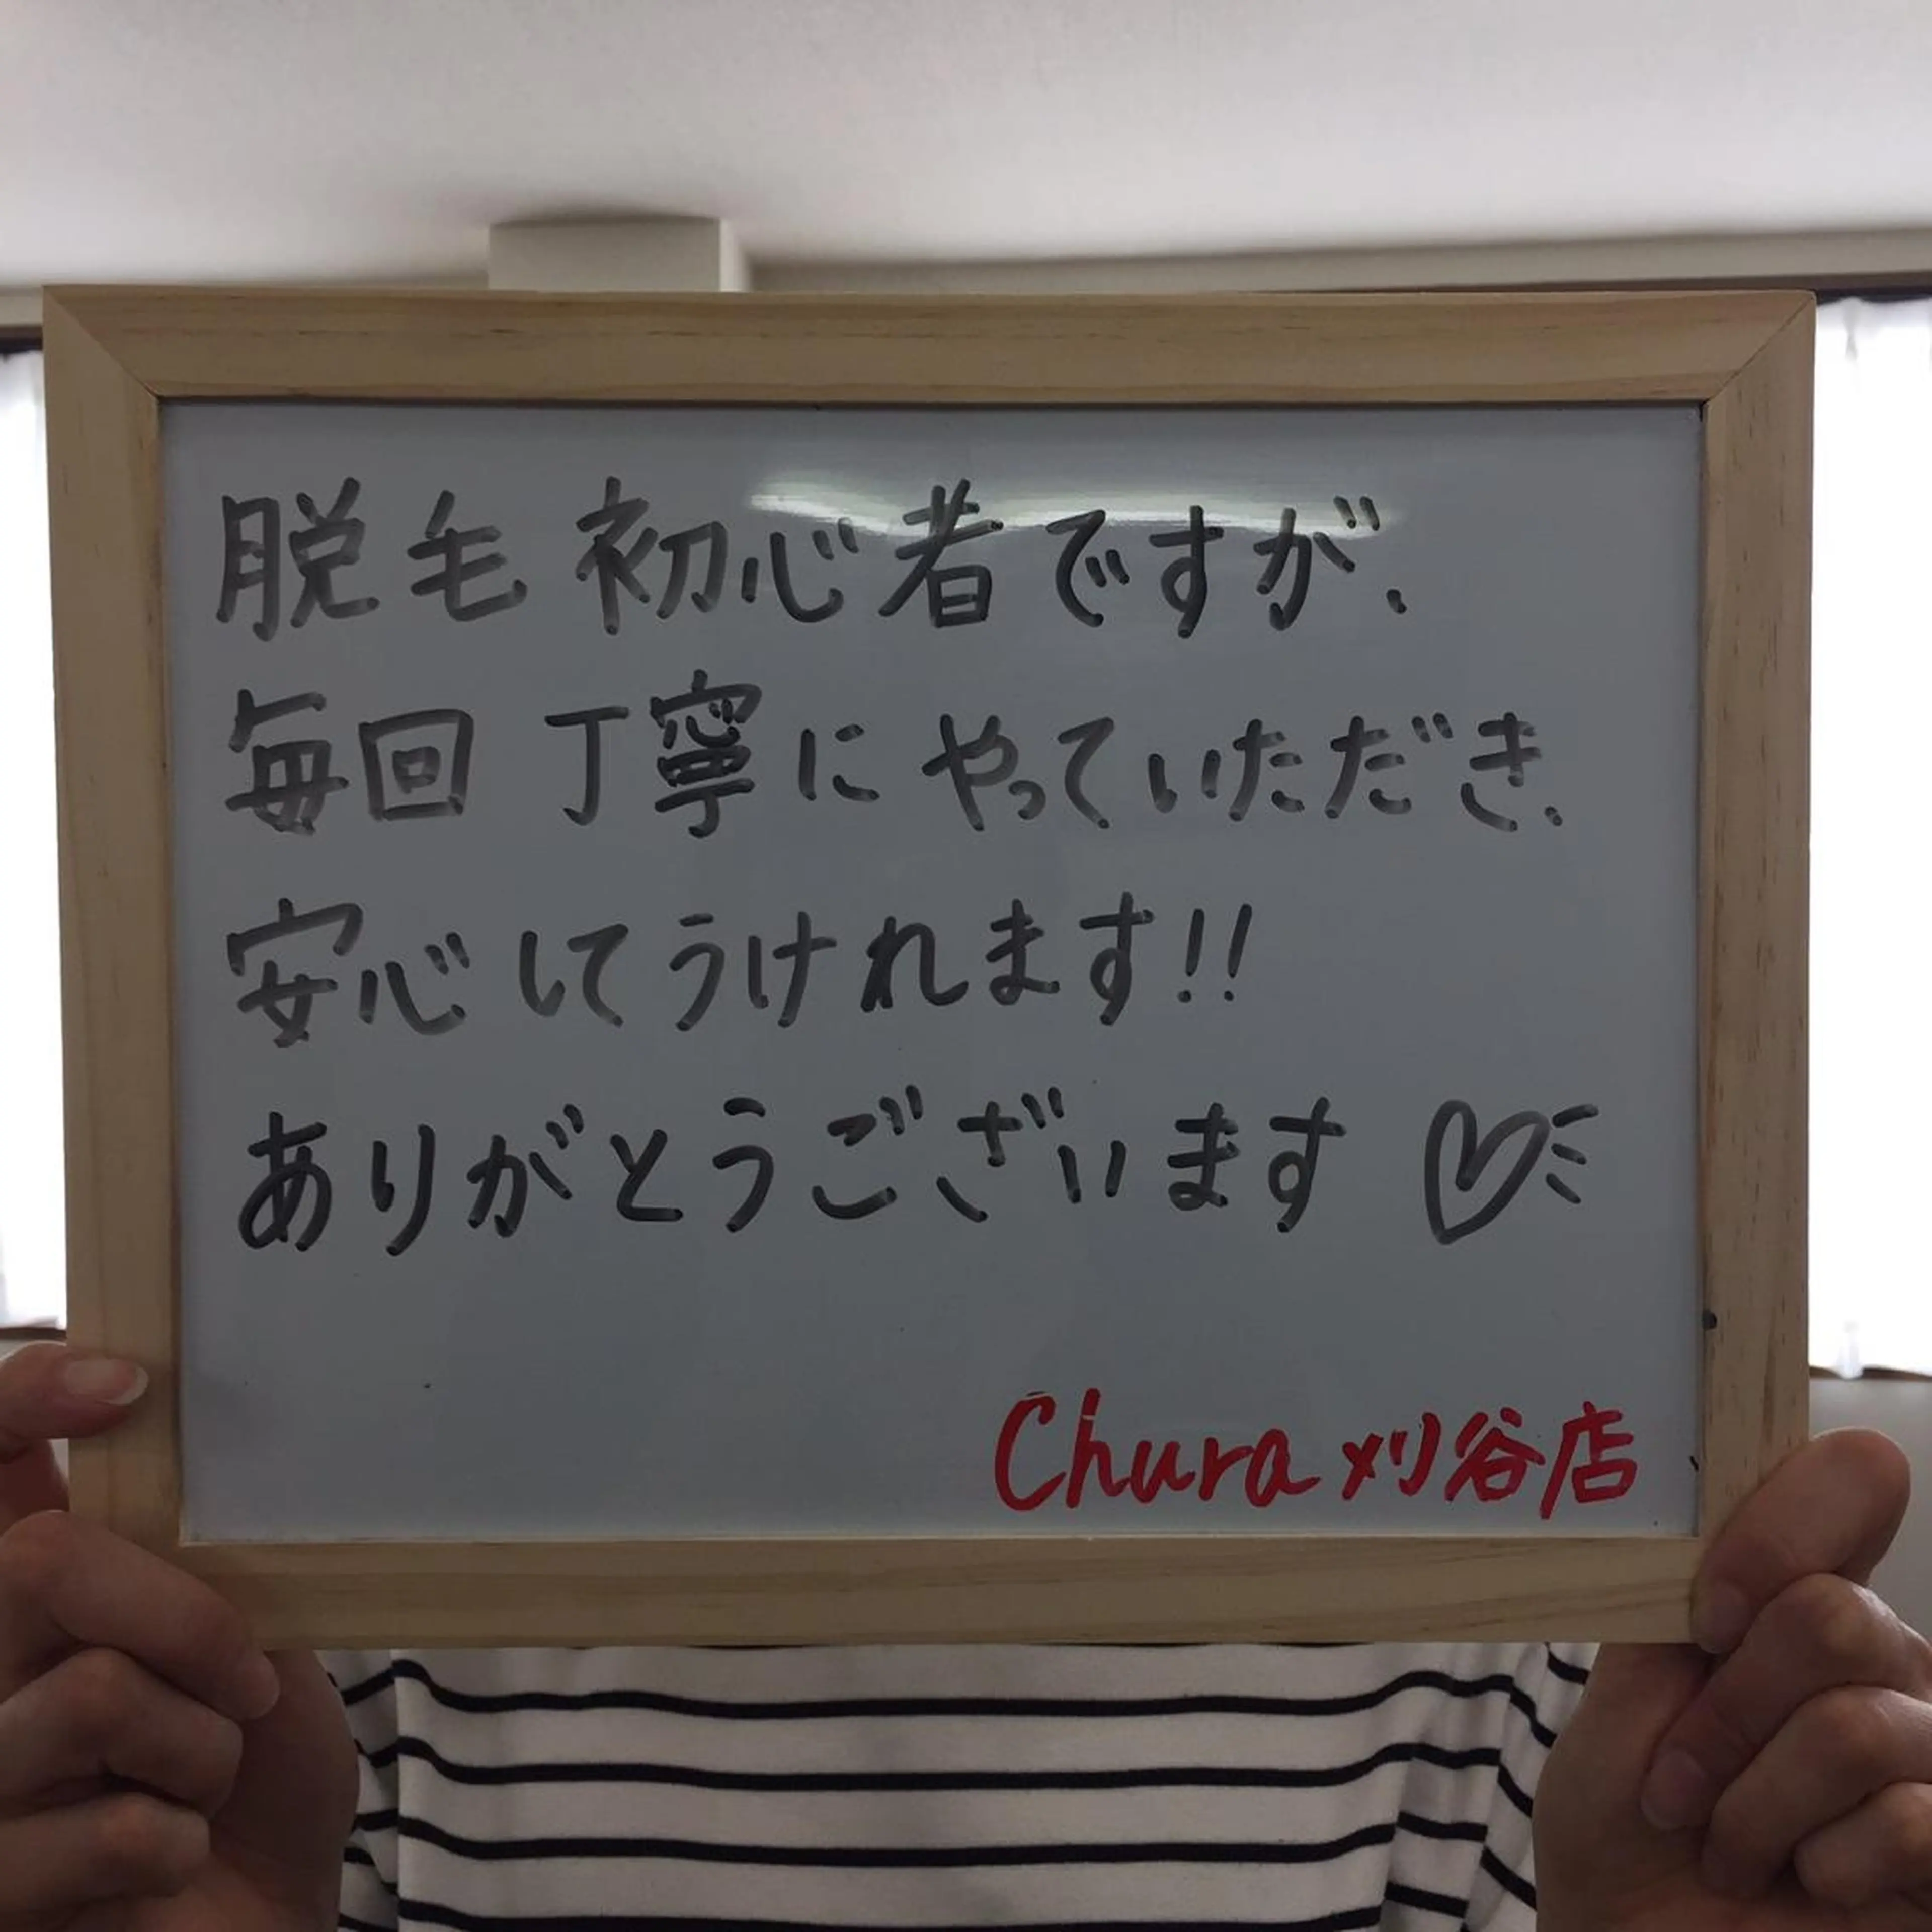 脱毛初心者ですが、
毎回丁寧にやっていただき、
安心してうけれます!!
ありがとうございます♡
Chura刈谷店